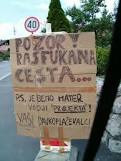 40
POZOR!
RASTUKANA
CESTA...
P.S. JE BENO MATER
VODJI "PROJEKTA"!
VAŠI
DAVKOPLAČEVALCI